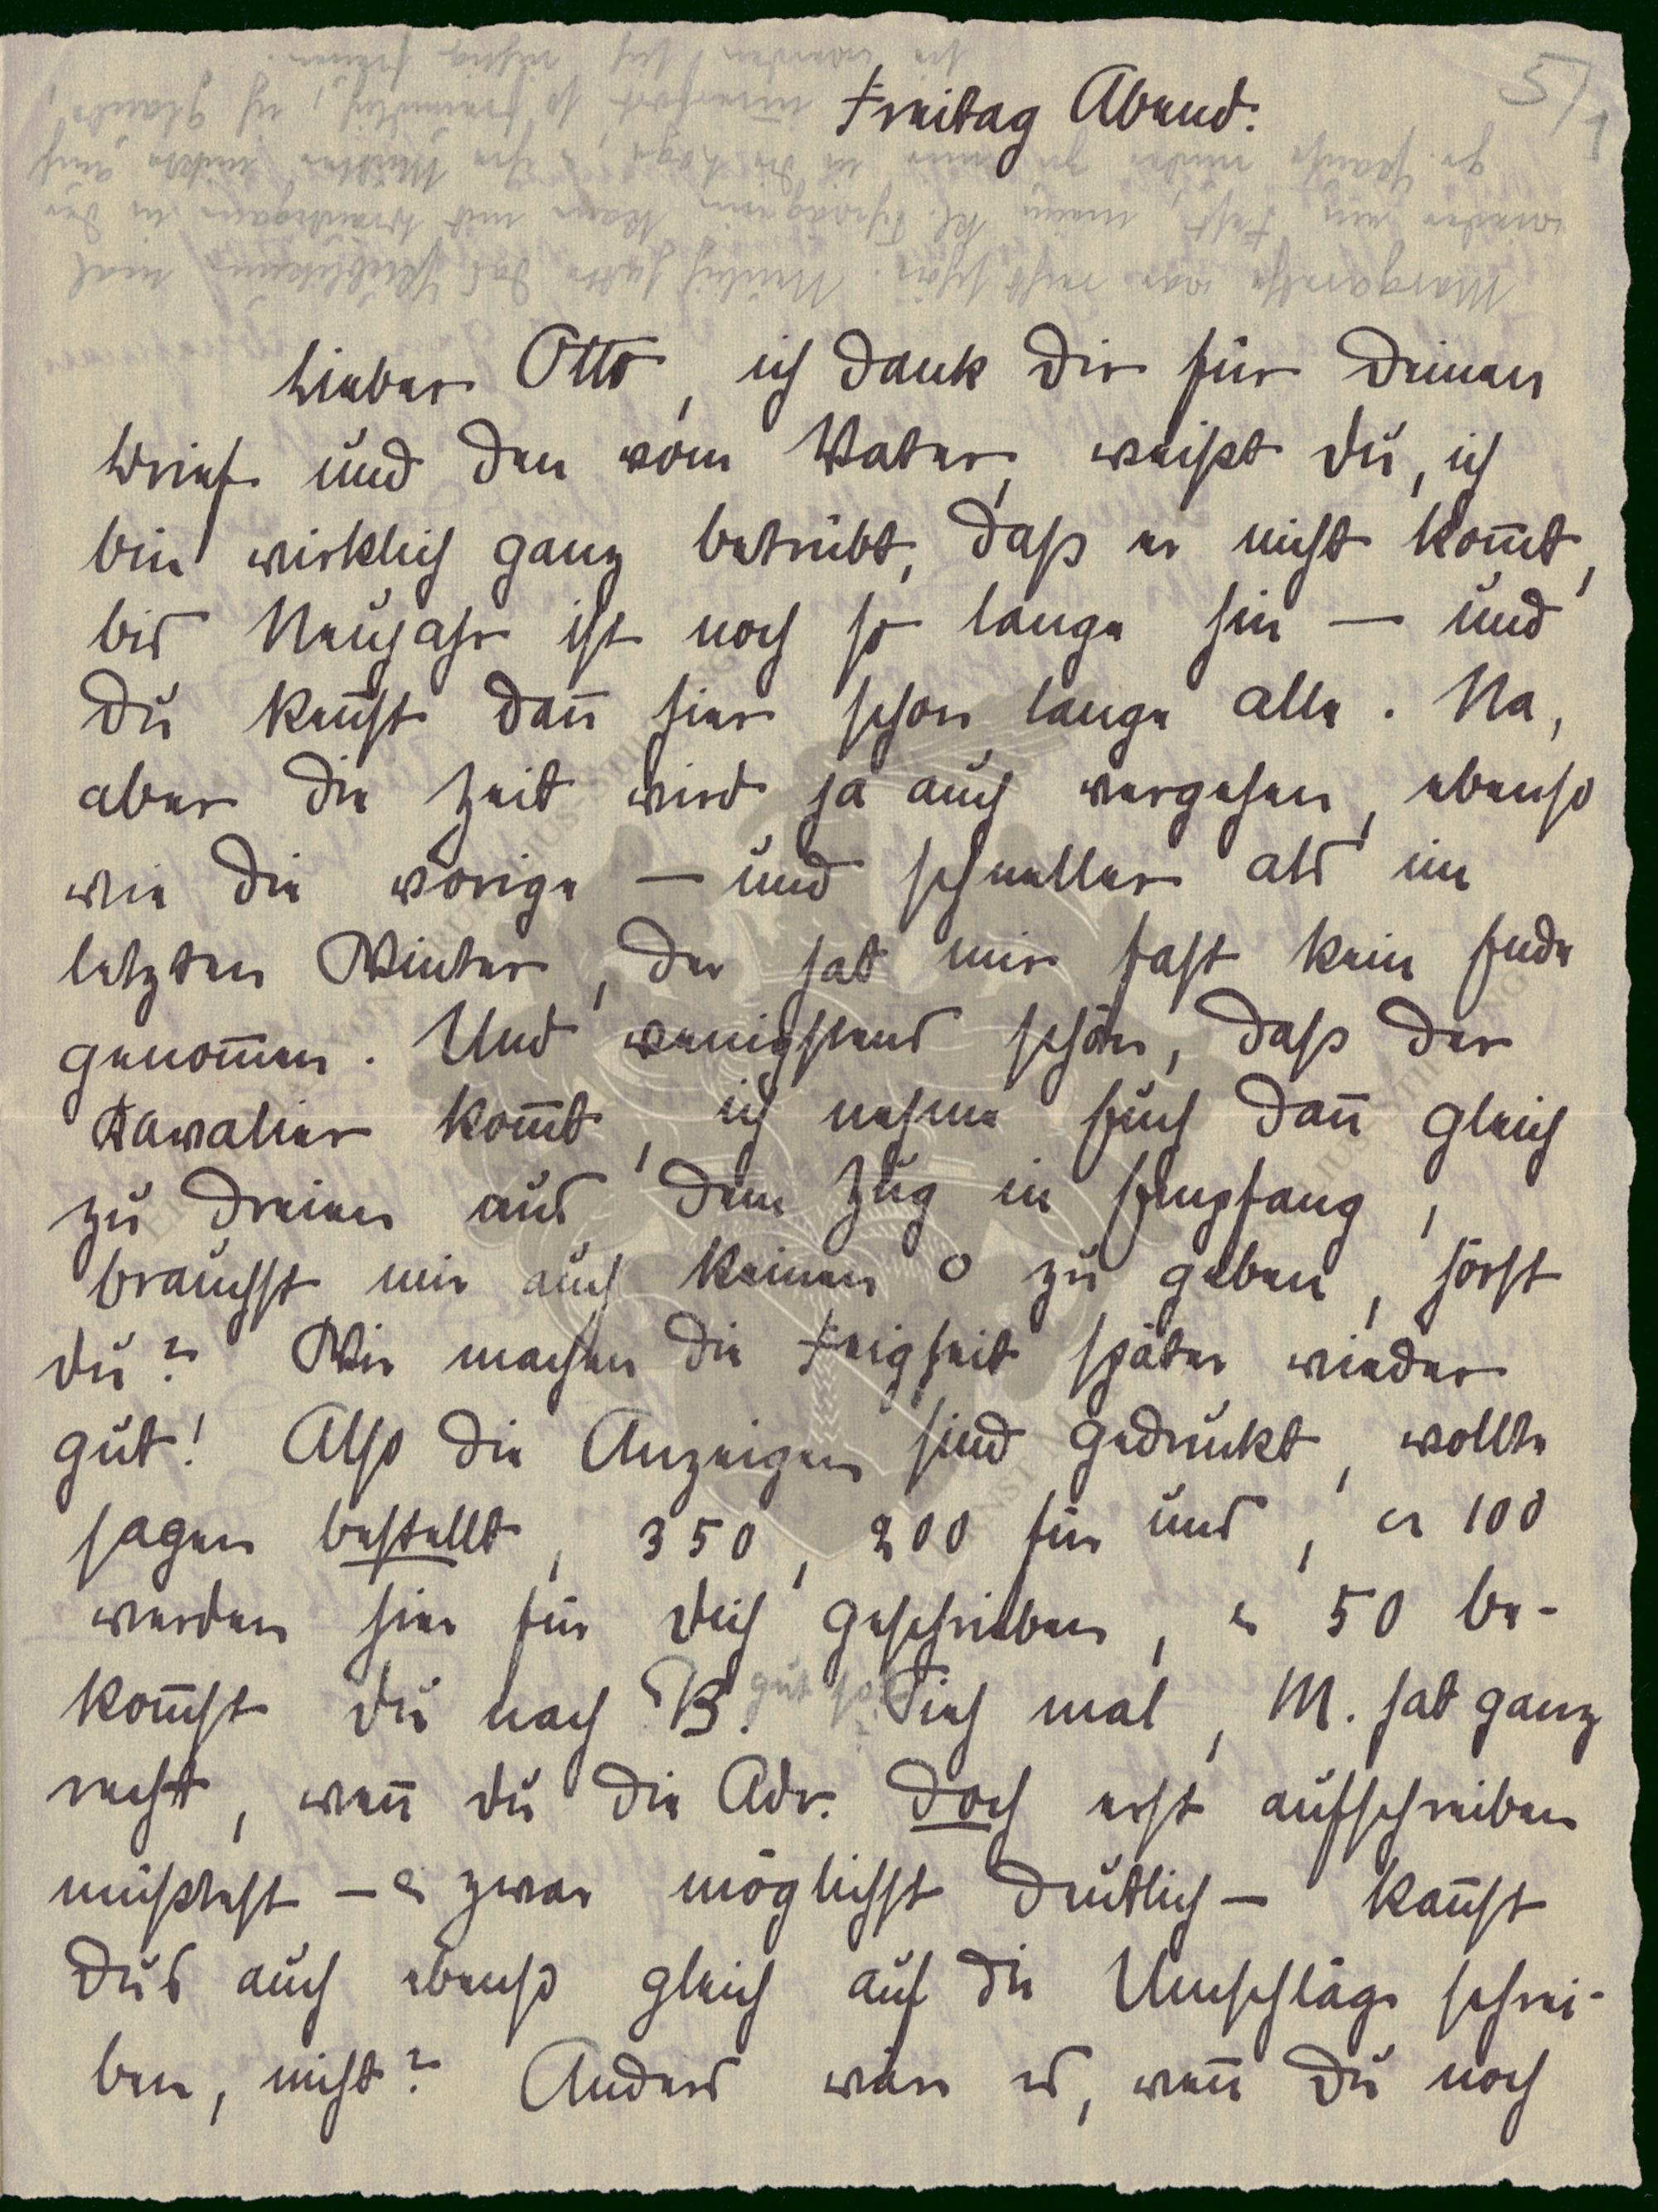 5/1
Freitag Abend.
Lieber Otto, ich dank Dir für Deinen
Brief und den vom Vater, weißt Du, ich
bin wirklich ganz betrübt, daß er nicht kom̅t,
bis Neujahr ist noch so lange hin — und
Du ken̅st dan̅ hier schon lange alle. Na,
aber die Zeit wird ja auch vergehen, ebenso
wie die vorige — und schneller als im
letzten Winter, der hat mir fast kein Ende
genom̅en. Und wenigstens schön, daß der
Kavalier kom̅t, ich nehme Euch dan̅ gleich
zu dreien aus dem Zug in Empfang,
brauchst mir auch keinen o zu geben, hörst
Du? Wir machen die Feigheit später wieder
gut! Also die Anzeigen sind gedruckt, wollte
sagen bestellt, 350, 200 für uns, u 100
werden hier für Dich geschrieben, u 50 be-
kom̅st Du nach B. gut so? Sieh mal, M. hat ganz
recht, wen̅ Du die Adr. doch erst aufschreiben
müßtest — u zwar möglichst deutlich — kan̅st
Dus auch ebenso gleich auf die Umschläge schrei-
ben, nicht? Anders wär es, wen̅ Du noch